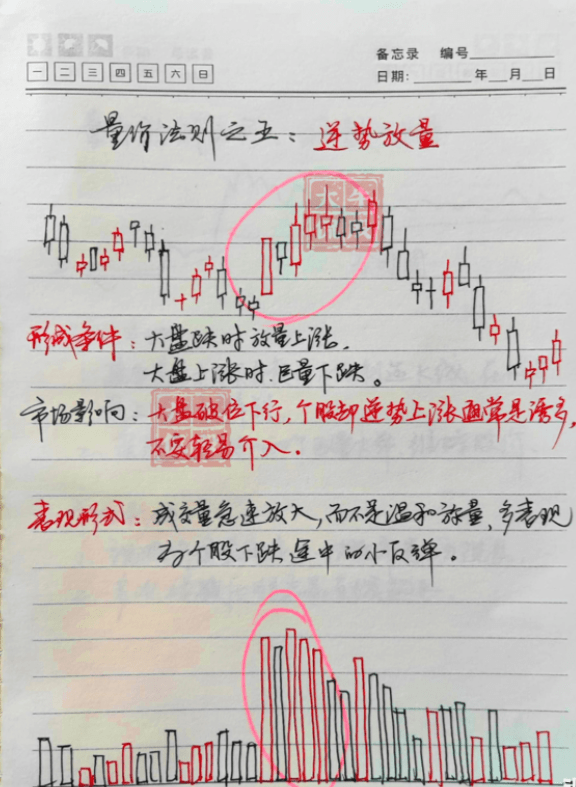 备忘录 编号
一 二 三 四 五 六 日
日期: 年 月 日
量价法则之五：逆势放量
形成条件：大盘跌时放量上涨，
大盘上涨时，巨量下跌。
市场影响：大盘破位下行，个股却逆势上涨通常是诱多，
不要轻易介入。
表现形式：成交量急速放大，而不是温和放量，多表现
为个股下跌途中的小反弹。